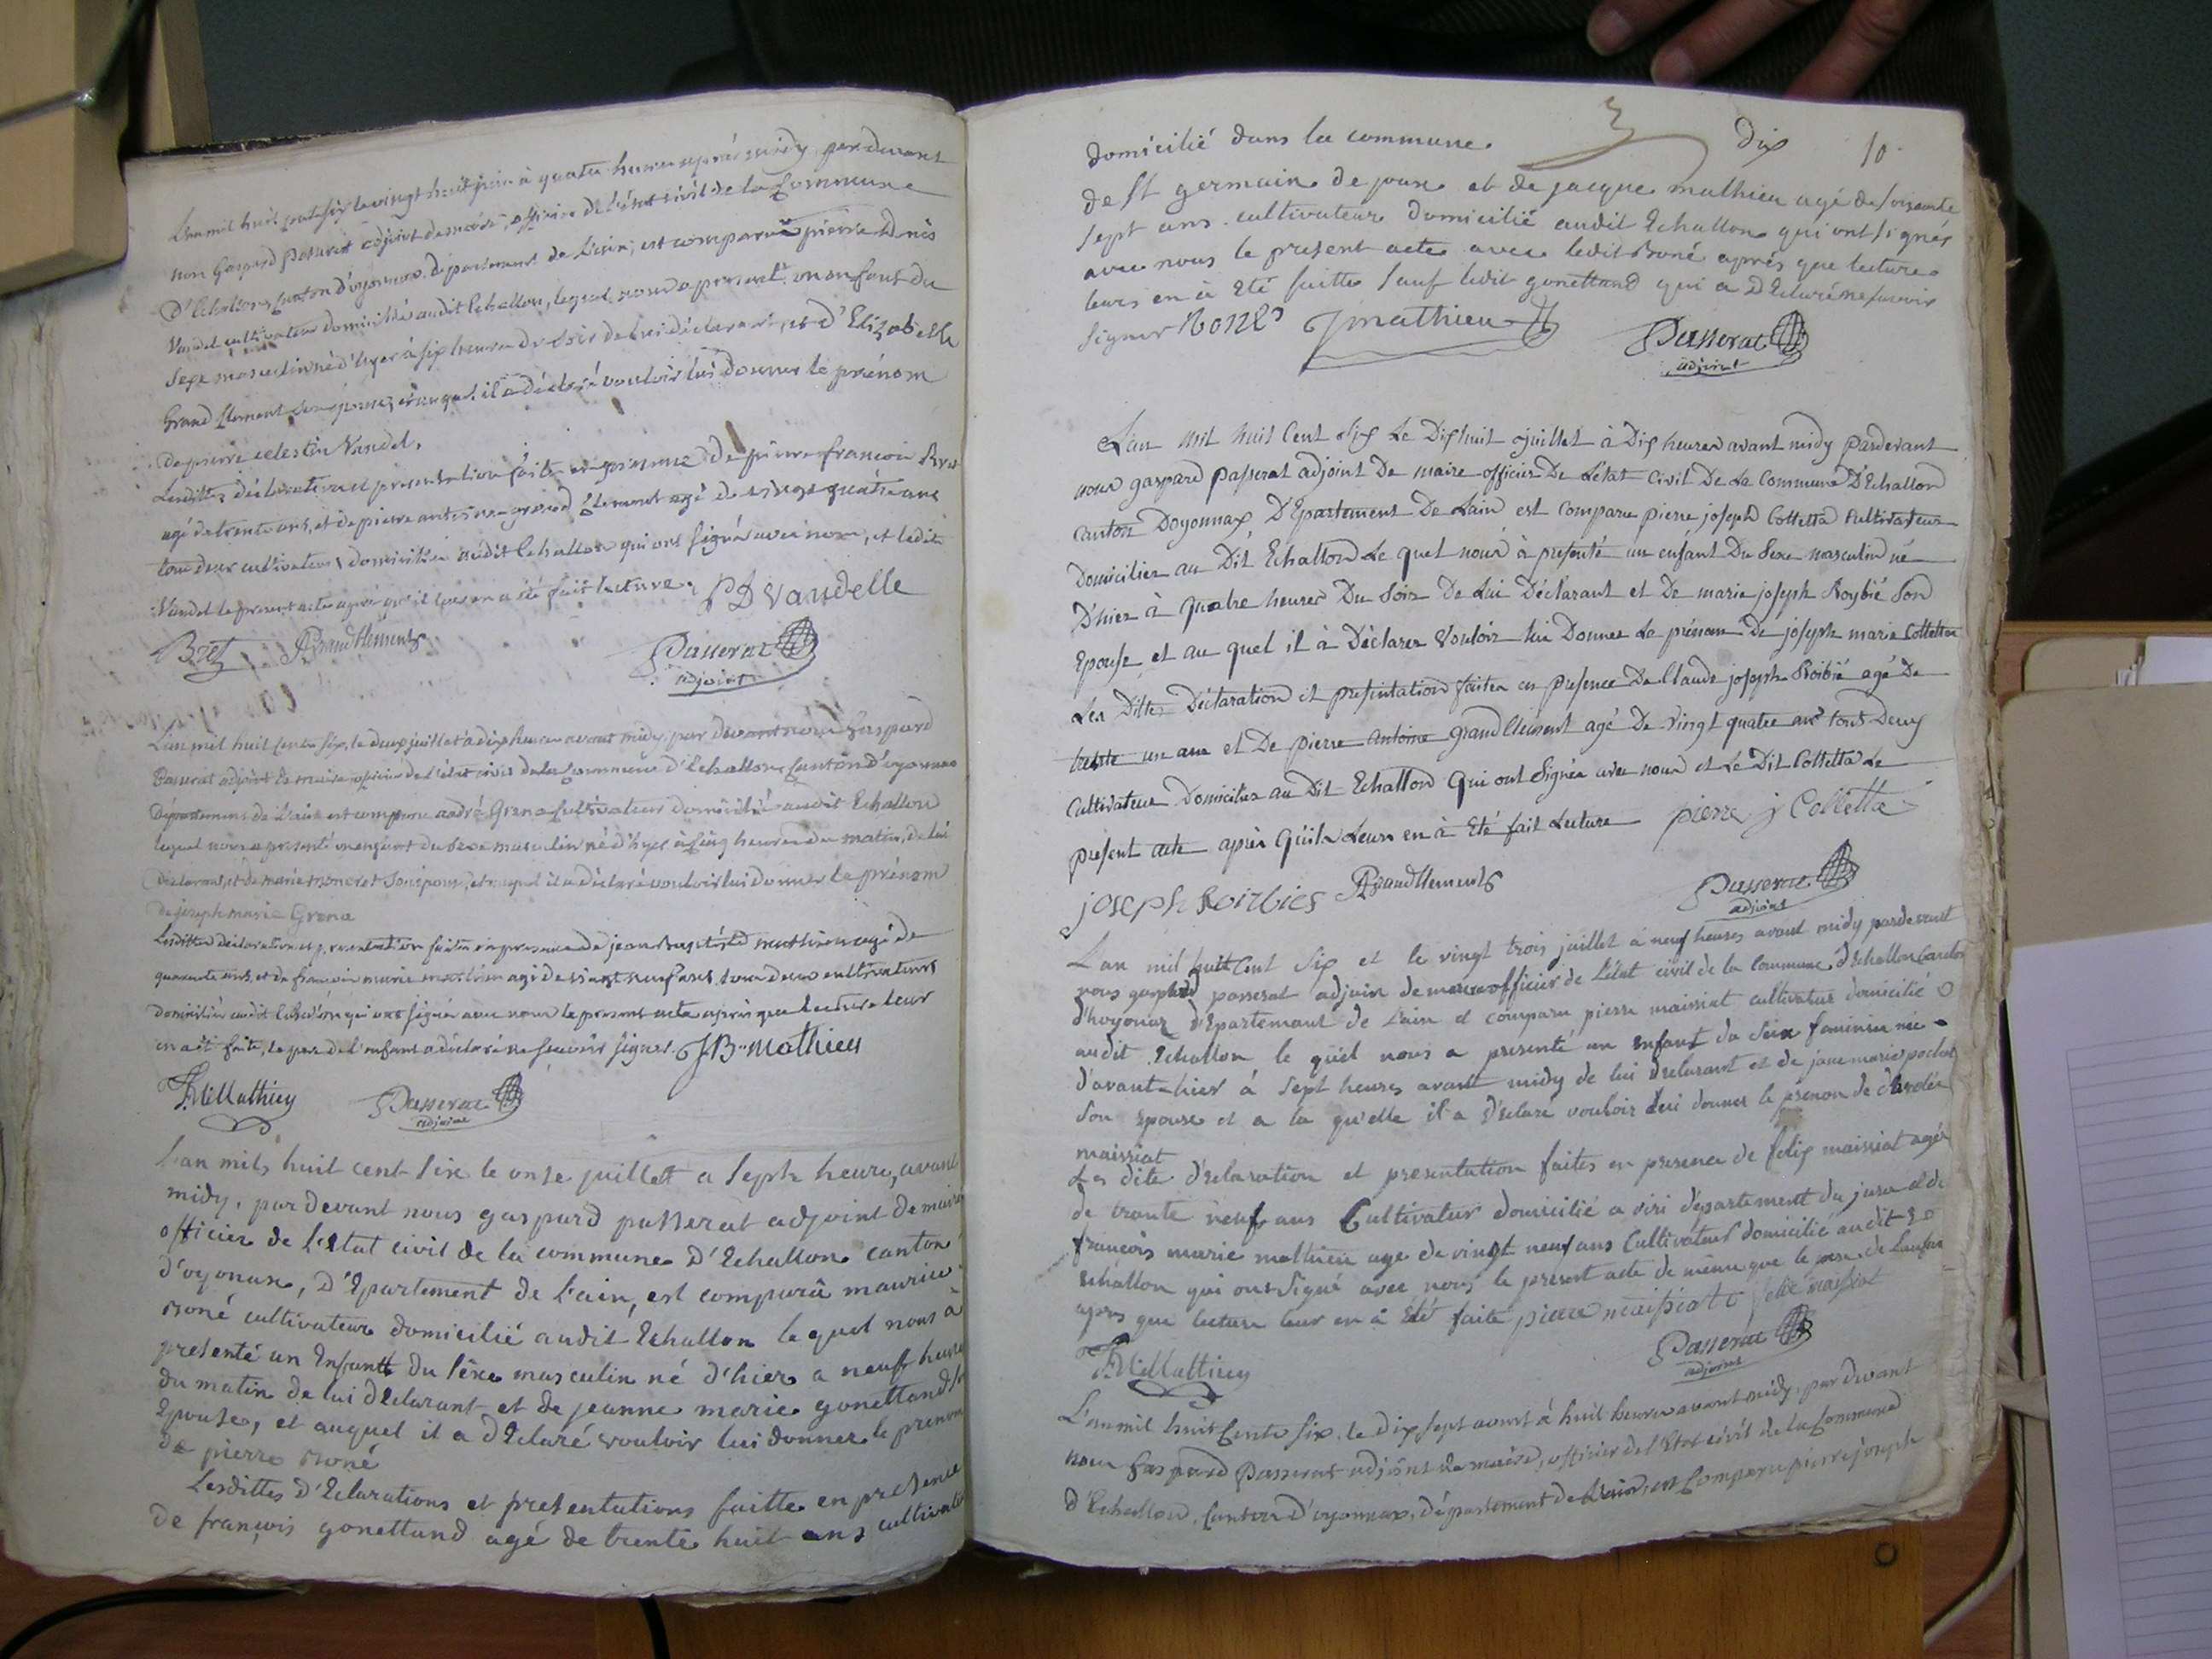 L'an mil huit cent six le vingt huit juin à quatre heures après midy, par devant
nous Gaspard Passerat adjoint de maire, officier de l'état civil de la Commune
D'Echallon, Canton d'oyonnax, département de l'ain, est comparu pierre Denis
Vandel cultivateur domicilié audit Echallon, lequel nous a présenté un enfant du
sexe masculin né d'hyer à six heures du soir de lui déclarant, et d'Elizabeth
Grand Clement son épouse, et auquel il a déclaré vouloir lui donner le prénom
de pierre celestin Vandel.
Lesdittes déclaration et présentation faites en présence de pierre françois Bret
agé de trente ans, et de pierre antoine grand Clement agé de vingt quatre ans
tous deux cultivateurs domiciliés audit Echallon qui ont signé avec nous, et ledit
Vandel le présent acte après qu'il leur en a été fait lecture. PD Vandelle
Bret PA Grandclement Passerat
adjoint
L'an mil huit cent six, le deux juillet à dix heures avant midy, par devant nous Gaspard
Passerat adjoint de maire officier de l'état civil de la Commune d'Echallon, Canton d'oyonnax
Département de l'ain est comparu andré Grena cultivateur domicilié audit Echallon
lequel nous a présenté un enfant du sexe masculin né d'hyer à cinq heures du matin, de lui
déclarant, et de marie son épouse, et auquel il a déclaré vouloir lui donner le prénom
de joseph marie Grena
Lesdittes déclaration et présentation faites en présence de jean baptiste mathieu agé de
quarante ans, et de françois marie mathieu agé de vingt neuf ans, tous deux cultivateurs
domiciliés audit Echallon qui ont signé avec nous le présent acte après que lecture leur
en a été faite, le père de l'enfant a déclaré ne scavoir signer. JB Mathieu
F. M. Mathieu Passerat
adjoint
L'an mil, huit cent six le onse juillet a sept heures, avant
midy, par devant nous gaspard passerat adjoint de maire
officier de l'Etat civil de la commune D'Echallon canton
d'oyonax, D'Epartement de l'ain, est comparû maurice
Roné cultivateur domicilié audit Echallon lequel nous à
presenté un Enfantt du séxe masculin né d'hier a neuf heures
du matin de lui dEclarant et de jeanne marie gonettand son
Epouse, et auquel il a dEclaré vouloir lui donner le prenom
de pierre Roné
Lesdittes d'Eclarations et presentations faitte en presence
de françois gonettand agé de trente huit ans cultivateur
Dix 10
domicilié dans la commune
de St germain de joux et de jacque mathieu agé de soixante
sept ans cultivateur domicilié audit Echallon qui ont signés
avec nous le present acte avec ledit Roné après que lecture
leurs en à Eté faitte sauf ledit gonettand qui a dEclaré ne savoir
signer Roné J mathieu Passerat
adjoint
L'an mil huit Cent Six Le Dix huit juillet à Dix heures avant midy Pardevant
nous gaspard passerat adjoint De maire officier De L'état Civil De La Commune D'Echallon
Canton Doyonnax D'Epartement De Lain est Comparu pierre joseph Colletta Cultivateur
Domicilier au Dit Echallon Le quel nous à presenté un enfant Du Sexe masculin né
D'hier à quatre heures Du Soir De Lui Déclarant et De marie joseph Roybié Son
Epouse et au quel il à Déclarer Vouloir lui Donner Le prénom De joseph marie Colletta
Les Dittes Déclaration et presentation faites en presence De Claude joseph Roibié agé De
trente un ans et De pierre antoine grand Clement agé De vingt quatre ans tous Deux
Cultivateur Domicilier au Dit Echallon Qui ont Signés avec nous et Le Dit Colletta Le
present acte après Qu'il Leurs en à Eté fait Lecture pierre j Colletta
joseph Roirbies PA Grandclement Passerat
adjoint
L'an mil huit Cent Six et le vingt trois juillet à neuf heures avant midy pardevant
nous gaspard passerat adjoin de maire officier de l'état civil de la Commune d'Echallon Canton
d'hoyonax d'Epartemant de l'ain et comparu pierre maissiat cultivateur domicilié
audit Echallon le quel nous a presenté un enfant du Sexe feminin née
d'avant-hier à sept heures avant midy de lui déclarant et de jane marie pochet
Son Epouse et a la qu'elle il a déclaré vouloir lui donner le prenon de
maissiat
Les dite d'Eclaration et presentation faites en presence de felix maissiat agé
de trante neuf ans Cultivateur domicilié a viri département du jura et de
françois marie mathieu age de vingt neuf ans Cultivateur domicilié audit
Echallon qui ont Signé avec nous le present acte de même que le pere de l'anfan
apres que lecture leur en à Eté faite pierre maissiat felix maissiat
F. M. Mathieu Passerat
adjoint
L'an mil huit Cent Six, le dix sept aoust à huit heures avant midy, par devant
nous Gaspard Passerat adjoint de maire, officier de l'Etat civil de la Commune
d'Echallon, Canton d'oyonnax, département de l'ain, est Comparu pierre joseph